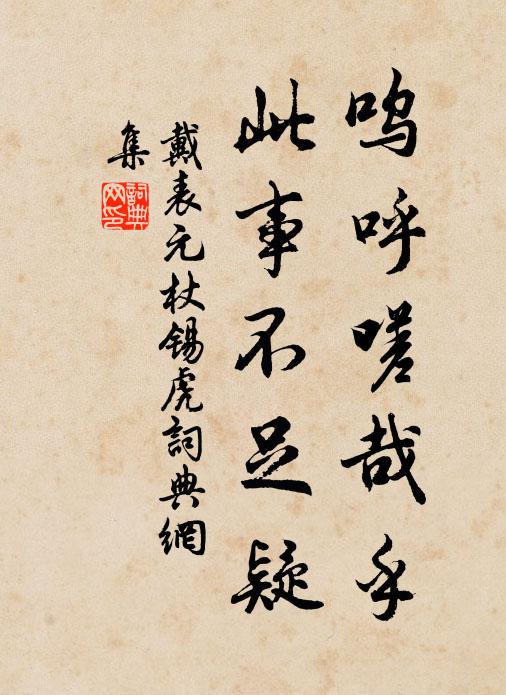 呜呼嗟哉乎
此事不足疑
戴表元杖锡虎詞典網
集
詞典网印